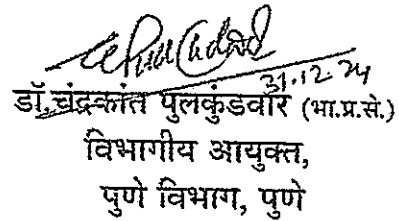 31.12.24
डॉ.चंद्रकांत पुलकुंडवार (भा.प्र.से.)
विभागीय आयुक्त,
पुणे विभाग, पुणे